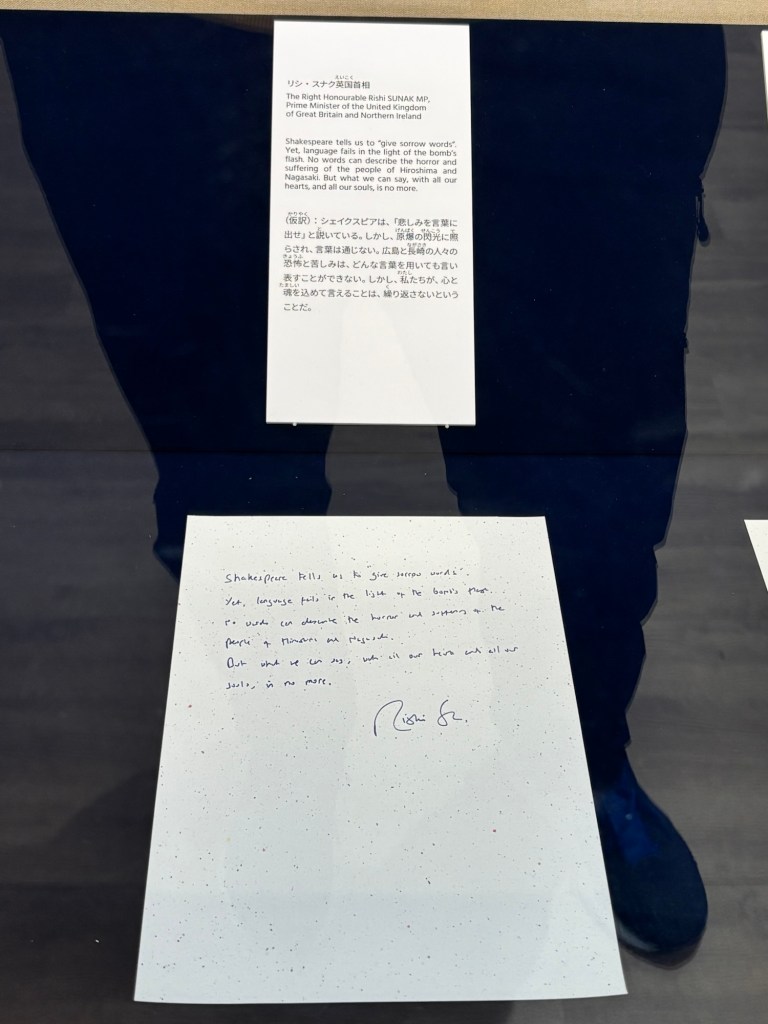 リシ・スナク英国首相
The Right Honourable Rishi SUNAK MP,
Prime Minister of the United Kingdom
of Great Britain and Northern Ireland
Shakespeare tells us to "give sorrow words".
Yet, language fails in the light of the bomb's
flash. No words can describe the horror and
suffering of the people of Hiroshima and
Nagasaki. But what we can say, with all our
hearts, and all our souls, is no more.
(仮訳):シェイクスピアは、「悲しみを言葉に
出せ」と説いている。しかし、原爆の閃光に照
らされ、言葉は通じない。広島と長崎の人々の
恐怖と苦しみは、どんな言葉を用いても言い
表すことができない。しかし、私たちが、心と
魂を込めて言えることは、繰り返さないという
ことだ。
Shakespeare tells us to "give sorrow words".
Yet, language fails in the light of the bomb's flash.
No words can describe the horror and suffering of the
people of Hiroshima and Nagasaki.
But what we can say, with all our hearts and all our
souls, is no more.
Rishi